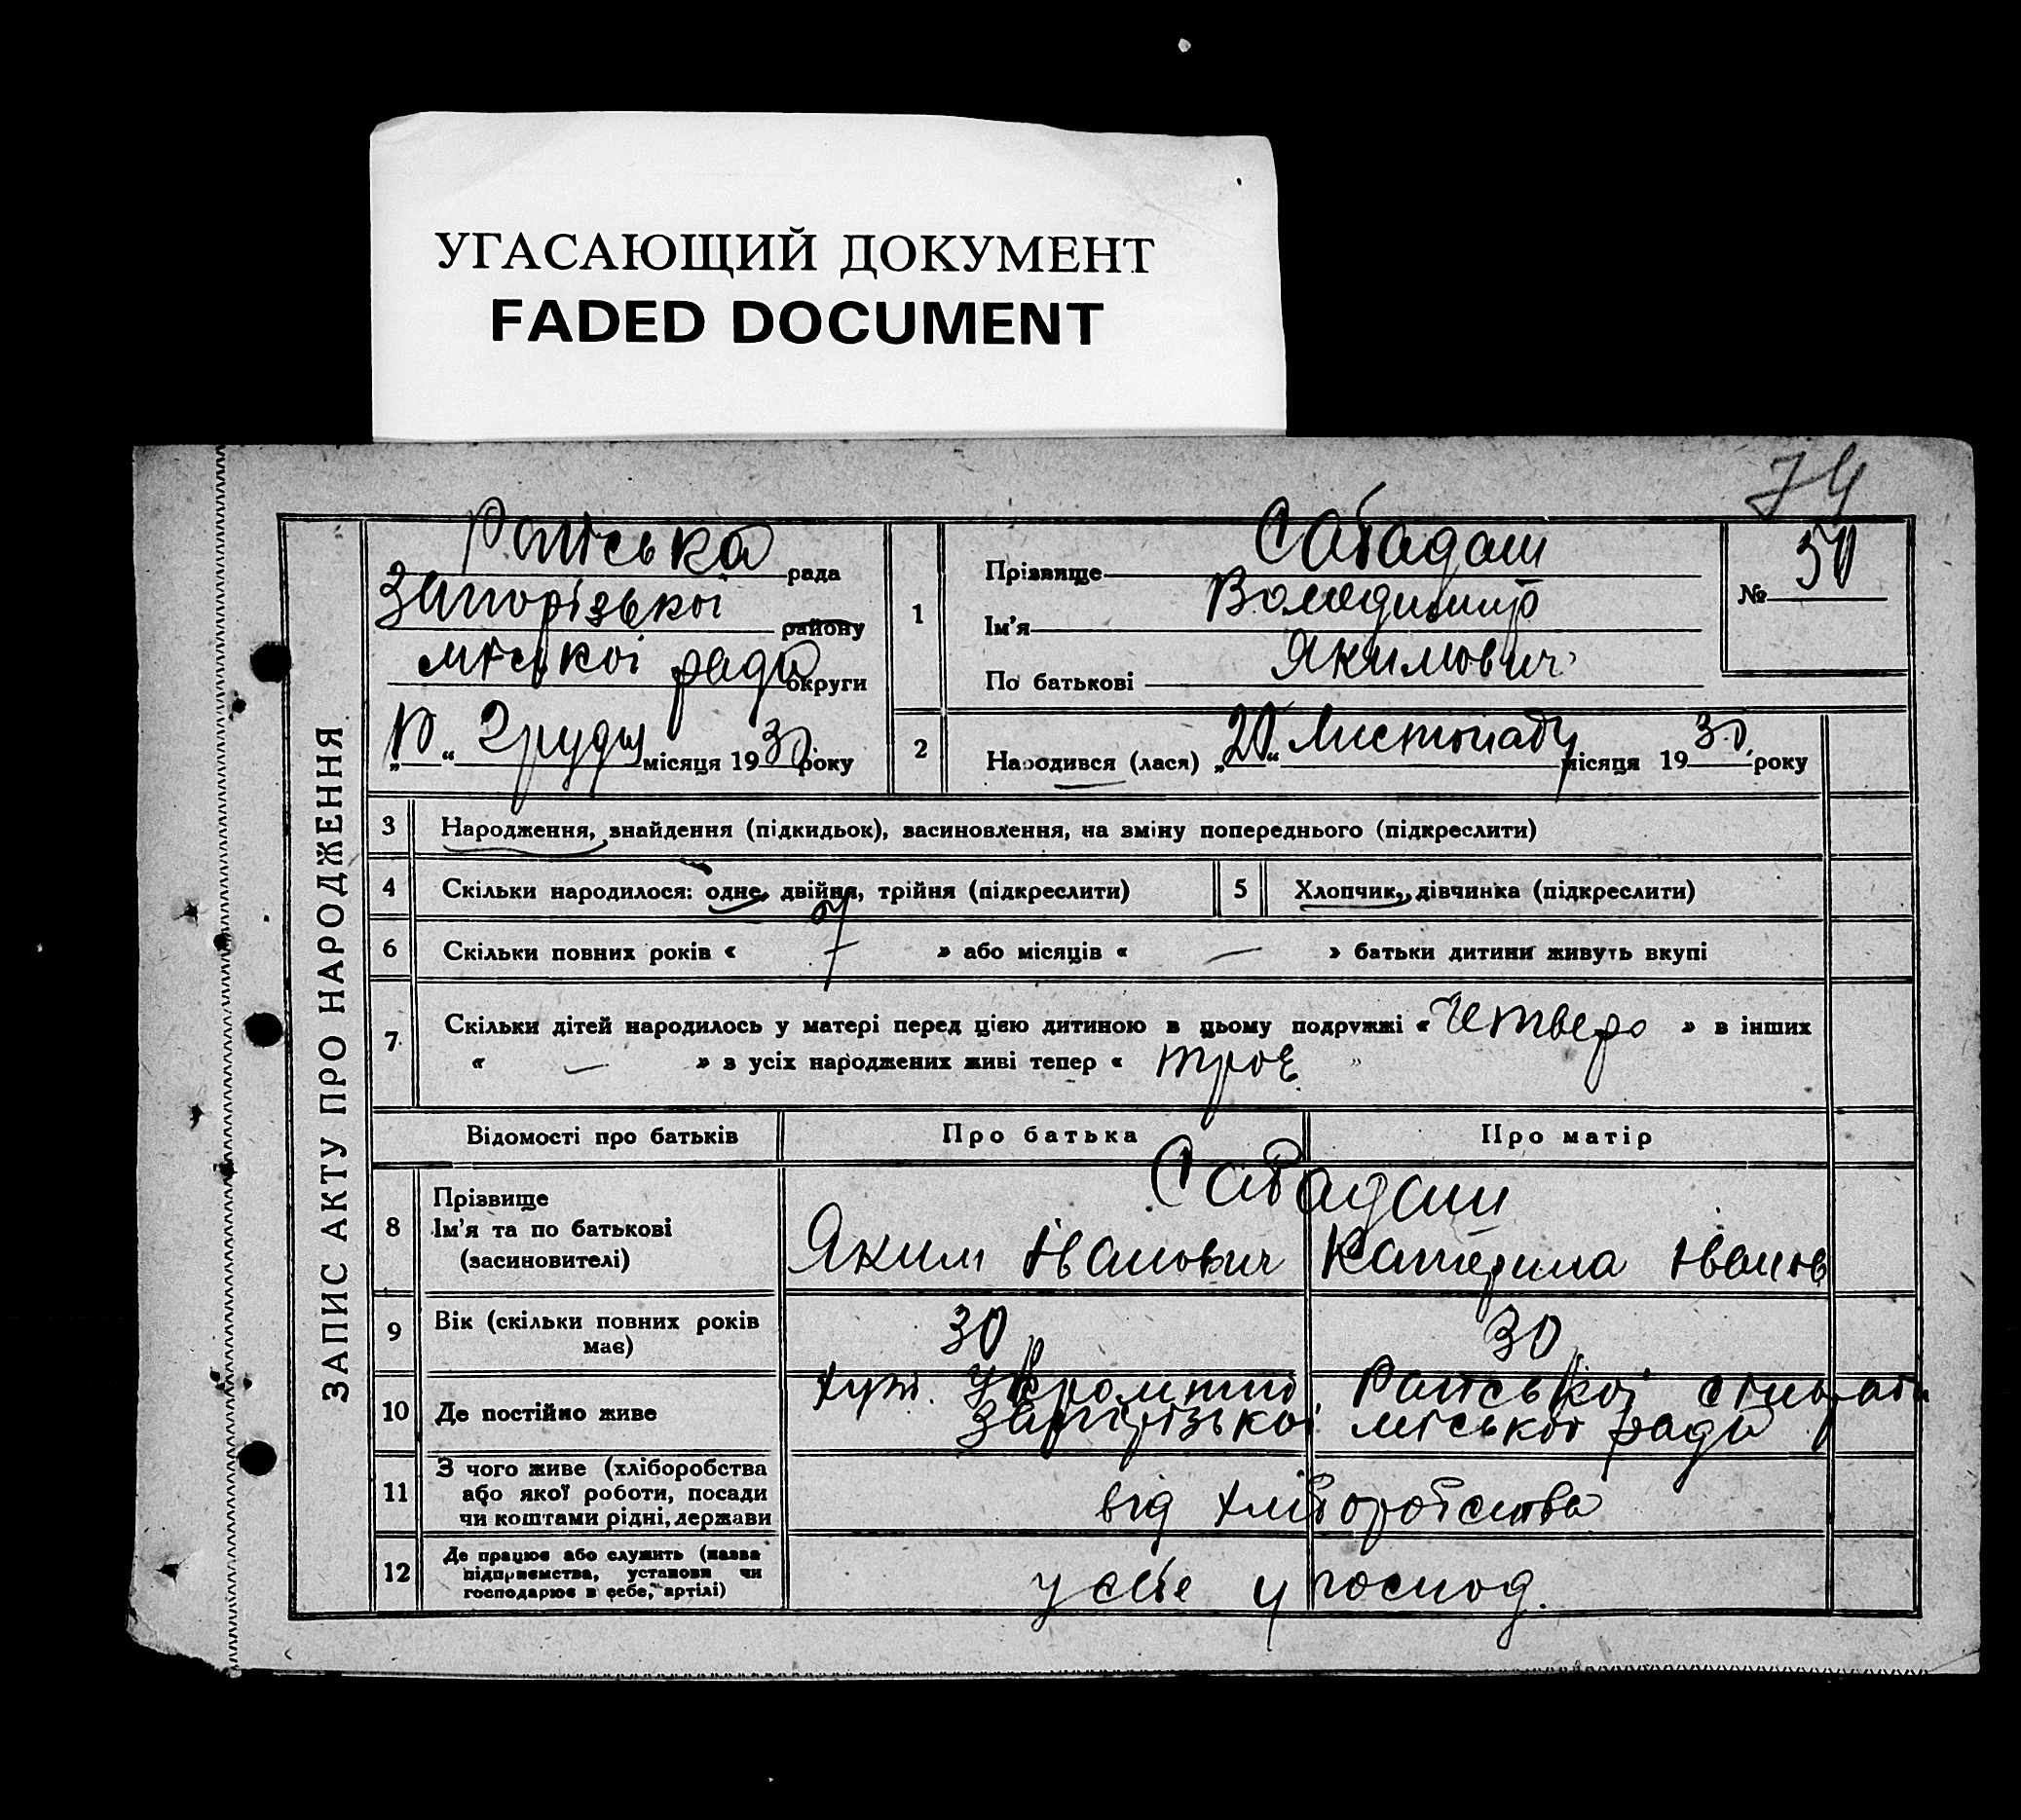 УГАСАЮЩИЙ ДОКУМЕНТ
FADED DOCUMENT
74
ЗАПИС АКТУ ПРО НАРОДЖЕННЯ
рада
Запорізької району
міської ради округи
„10“ Грудня місяця 1930 року
1
Прізвище Сабадаш
Ім'я Володимир
По батькові Якимович
№ 50
2 Народився (лася) „20“ Листопаду місяця 1930 року
3 Народження, знайдення (підкидьок), засиновлення, на зміну попереднього (підкреслити)
4 Скільки народилося: одне, двійня, трійня (підкреслити)
5 Хлопчик, дівчинка (підкреслити)
6 Скільки повних років « 7 » або місяців « — » батьки дитини живуть вкупі
7 Скільки дітей народилось у матері перед цією дитиною в цьому подружжі « Четверо » в інших
« — » з усіх народжених живі тепер « троє »
Відомості про батьків Про батька Про матір
8 Прізвище Сабадаш
Ім'я та по батькові Яким Іванович Катерина Іванов
(засиновителі)
9 Вік (скільки повних років має) 30 30
10 Де постійно живе хут. сільради
Запорізької міської ради
11 З чого живе (хліборобства
або якої роботи, посади
чи коштами рідні, держави
від хліборобства
12 Де працює або служить (назва
підприємства, установи чи
господарює в себе, артілі)
у себе у господ.